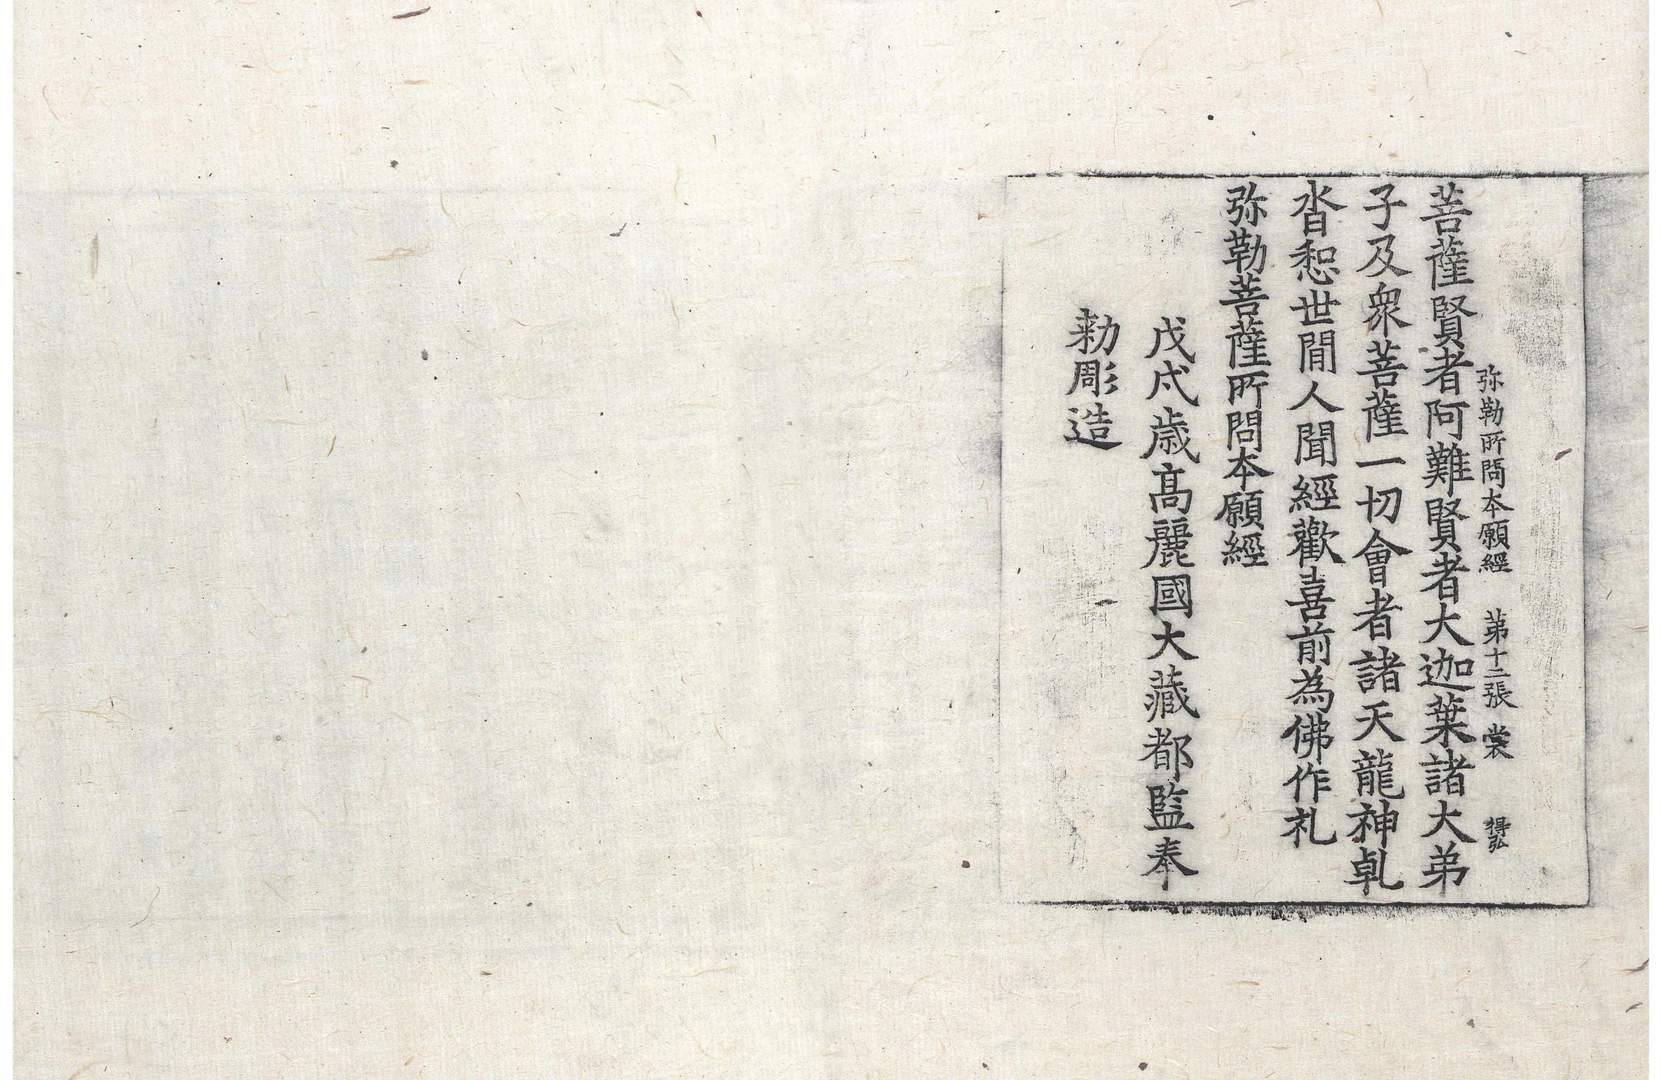 弥勒所問本願經 第十二張 裳 得弘
菩薩賢者阿難賢者大迦葉諸大弟
子及衆菩薩一切會者諸天龍神乹
沓惒世間人聞經歡喜前為佛作礼
弥勒菩薩所問本願經
戊戌歲高麗國大藏都監奉
勑彫造